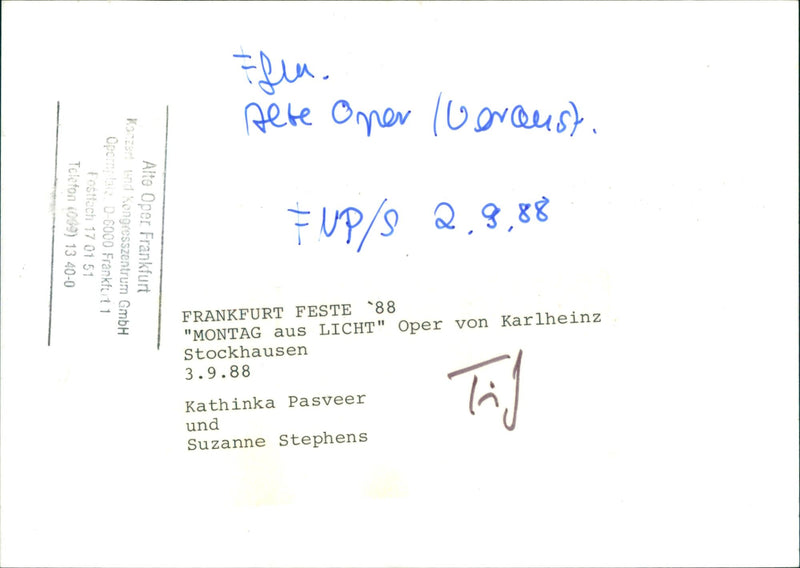 Ffm.
Alte Oper (Veranst.
FNP/S 2.9.88
Alte Oper Frankfurt
Konzert- und Kongresszentrum GmbH
Opernplatz, D-6000 Frankfurt 1
Postfach 17 01 51
Telefon (069) 13 40-0
FRANKFURT FESTE `88
"MONTAG aus LICHT" Oper von Karlheinz
Stockhausen
3.9.88
Kathinka Pasveer
und
Suzanne Stephens